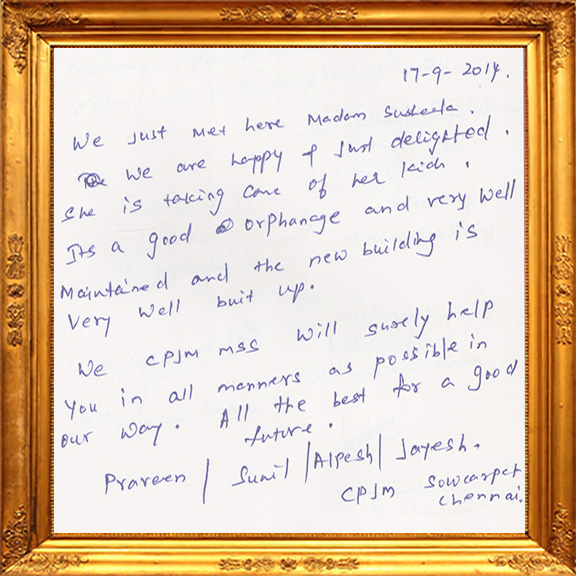 17-9-2014.
We Just Met here Madam Susheela.
We are happy & Just delighted.
She is taking care of her kids.
Its a good orphanage and very well
Maintained and the new building is
Very Well buit up.
We CPJM mss Will surely help
You in all manners as possible in
our way. All the best for a good
future.
Praveen / Sunil / Alpesh / Jayesh.
CPJM Sowcarpet
Chennai.